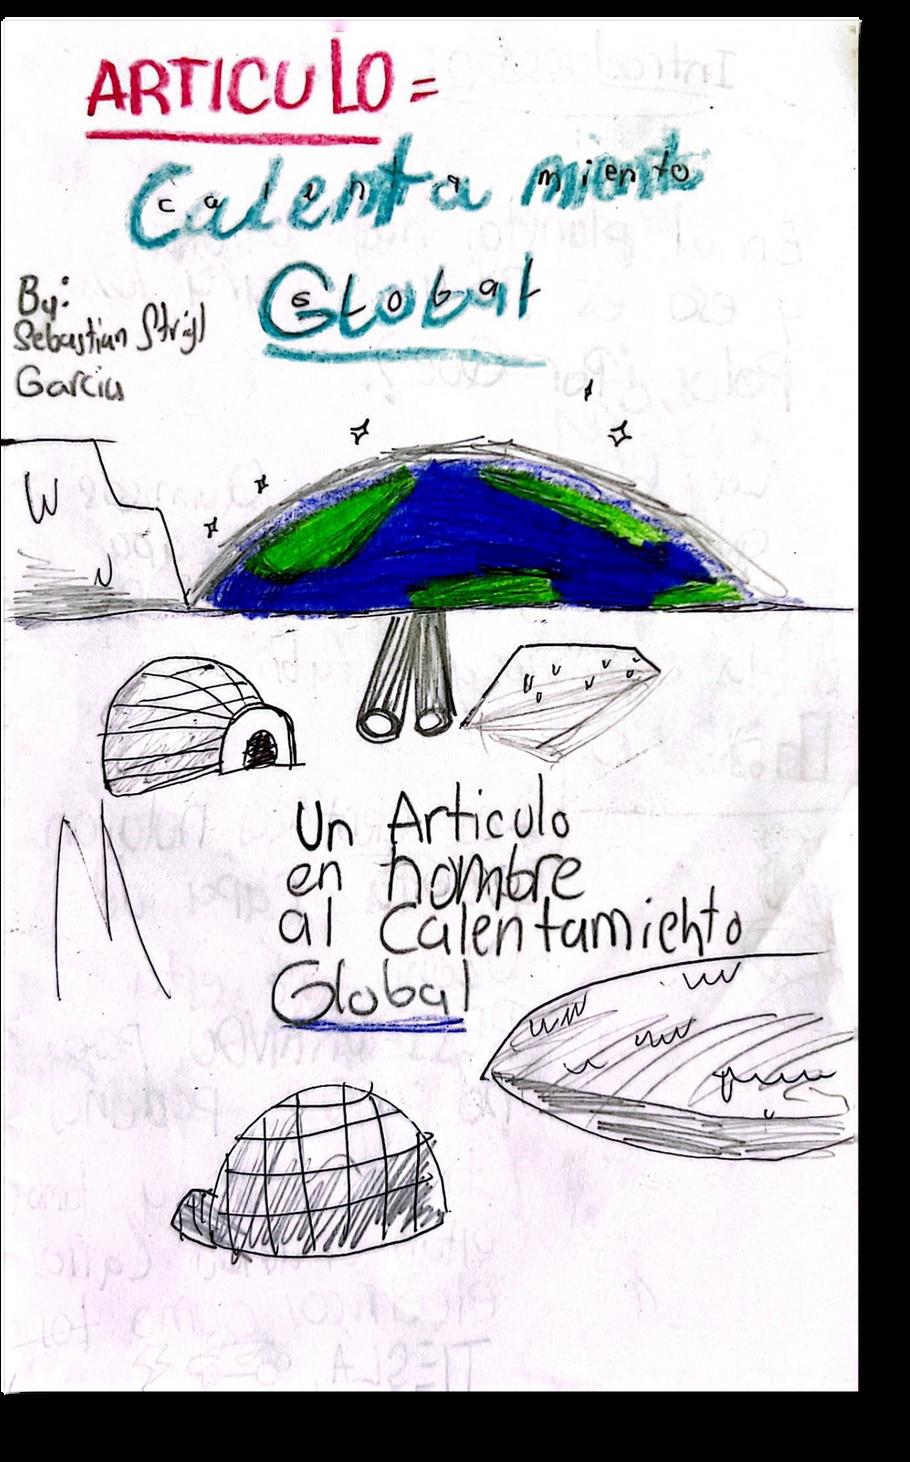 ARTICULO =
Calenta miento
Global
By:
Sebastian Strigl
Garcia
Un Articulo
en hombre
al Calentamiento
Global